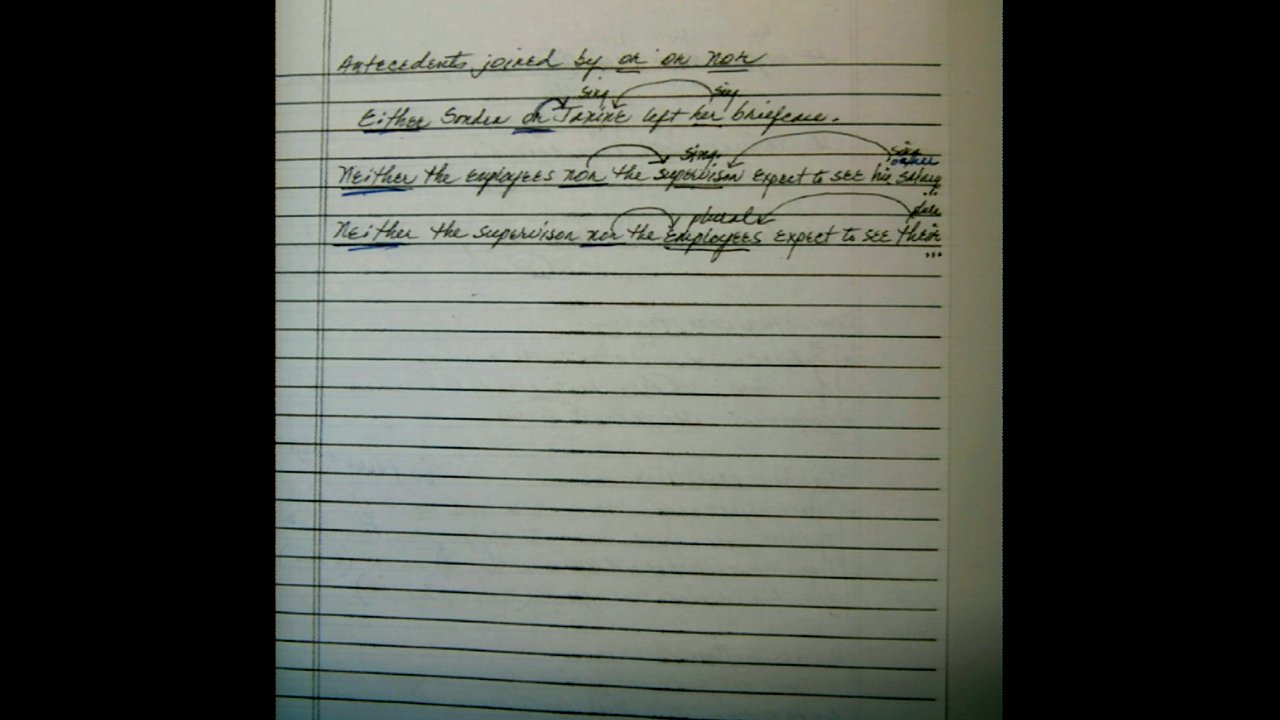 Antecedents joined by or or nor
sing sing.
Either Sondra or Janine left her briefcase.
sing. sing
or her
Neither the employees nor the supervisor expect to see his salary
plural plural
Neither the supervisor nor the employees expect to see their
...